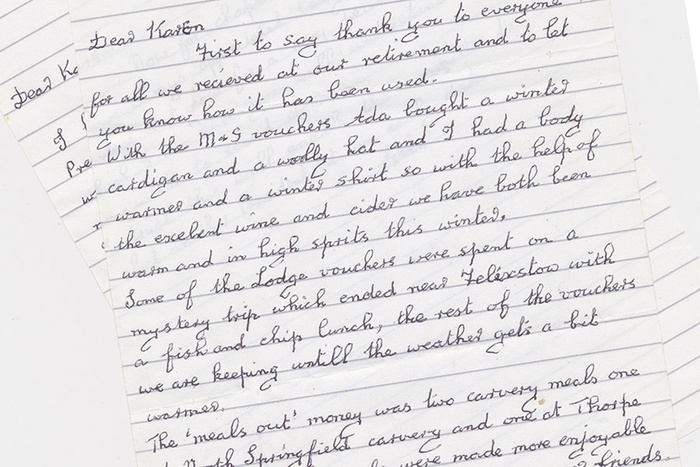 Dear Karen
First to say thank you to everyone
for all we recieved at our retirement and to let
you know how it has been used.
With the M&S vouchers Ada bought a winter
cardigan and a woolly hat and I had a body
warmer and a winter shirt so with the help of
the excelent wine and cider we have both been
warm and in high sprits this winter.
Some of the Lodge vouchers were spent on a
mystery trip which ended near Felixstow with
a fish and chip lunch, the rest of the vouchers
we are keeping untill the weather gets a bit
warmer.
The 'meals out' money was two carvery meals one
North Springfield carvery and one at Thorpe
were made more enjoyable
friends.
Dear Ka
I
Pre
w